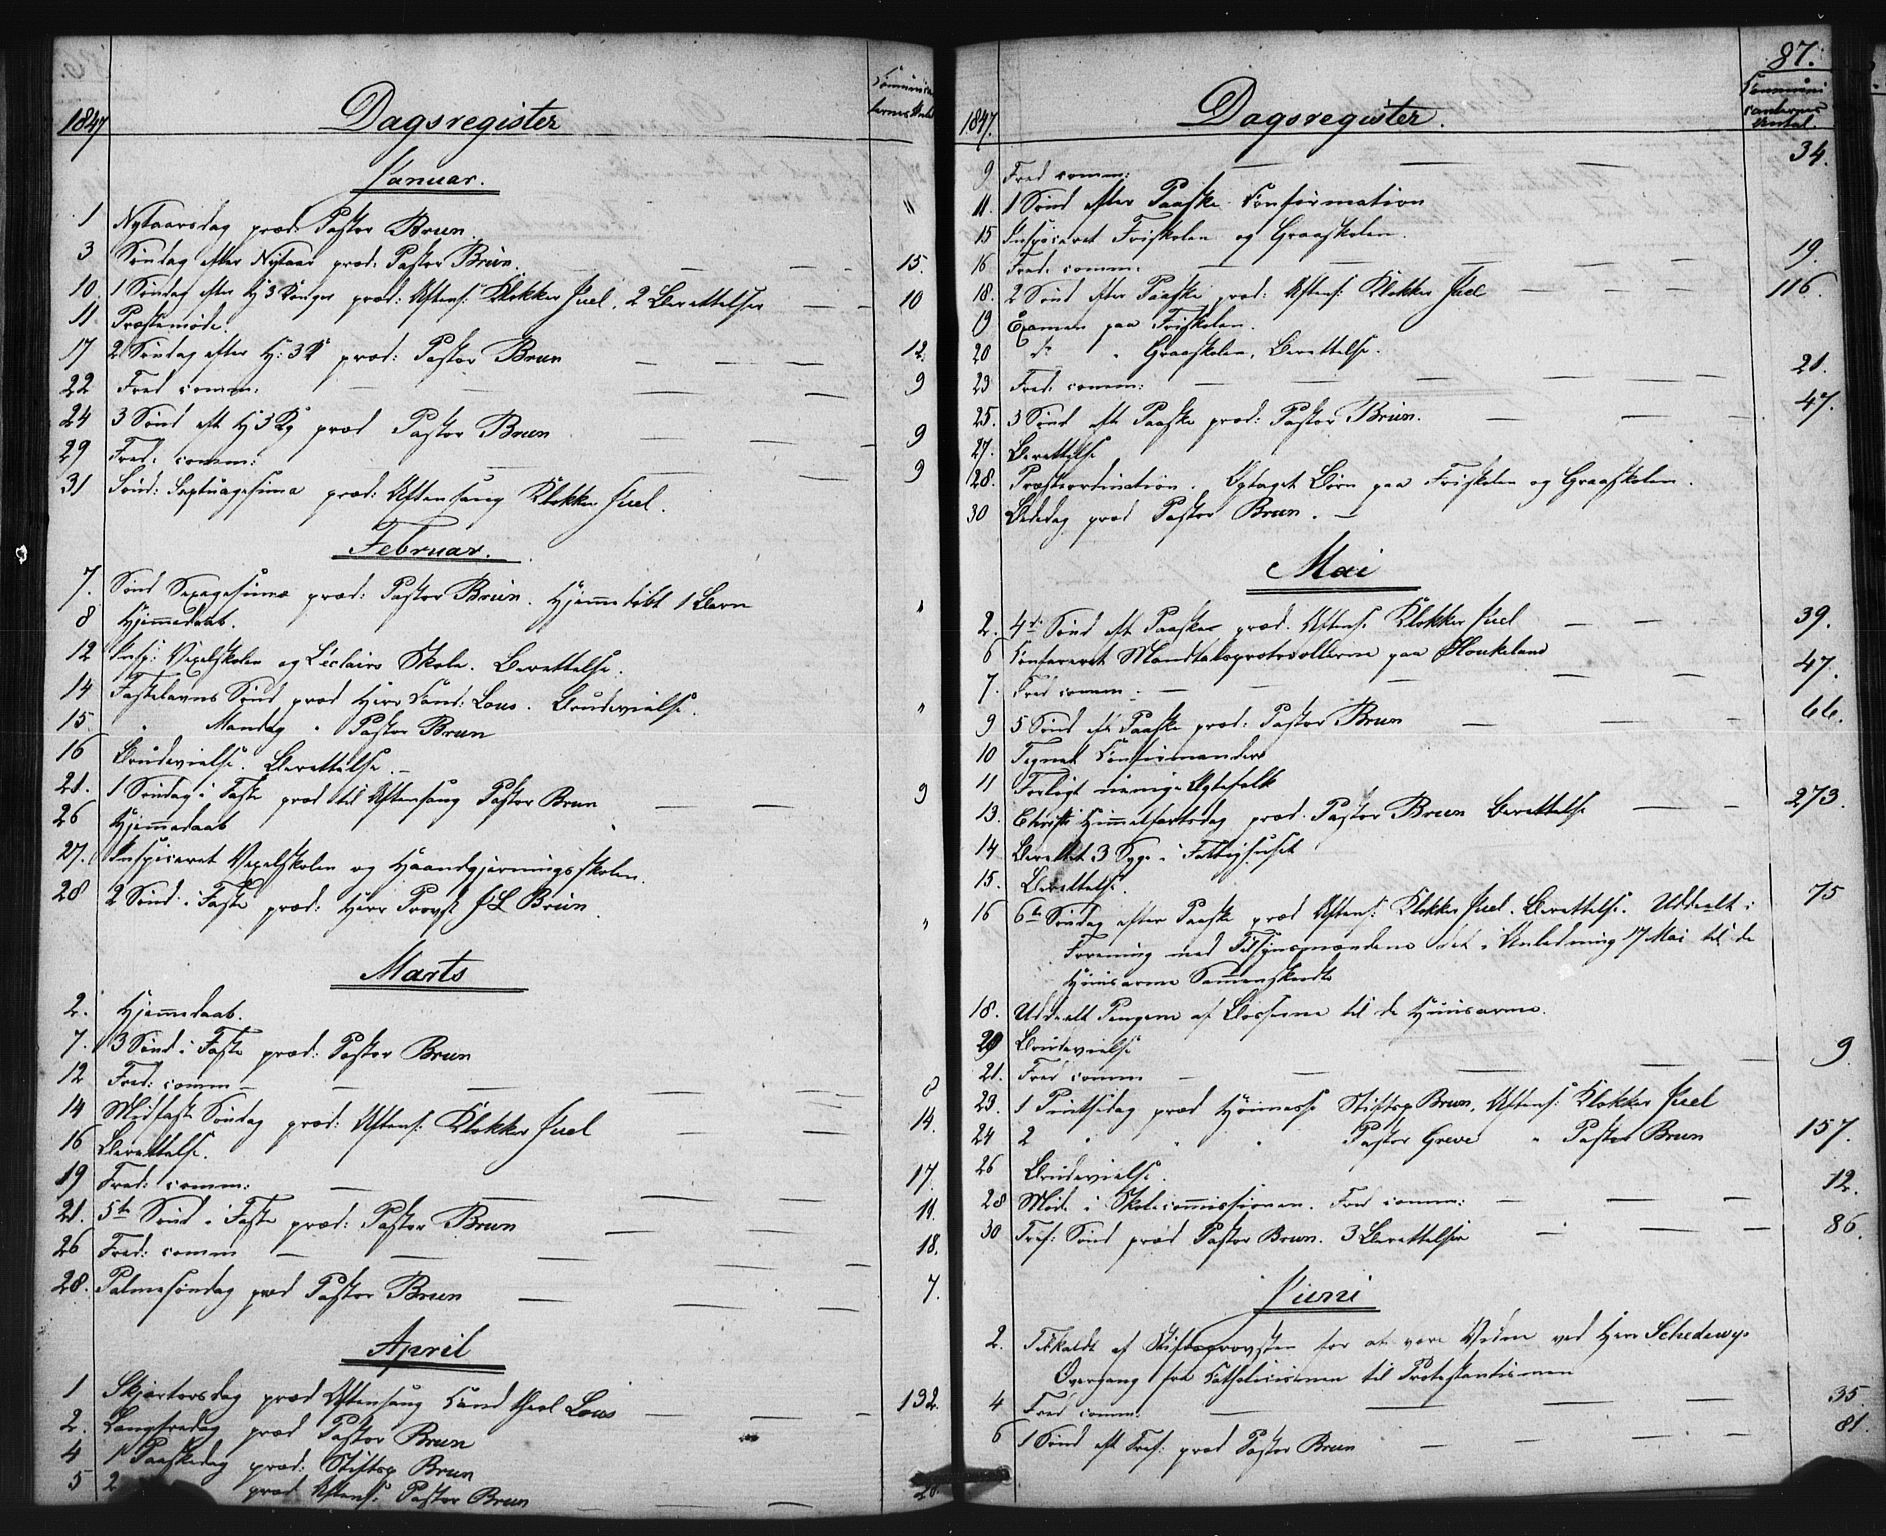 1847 Dagsregister Communicanternes Antal
Januar.
1 Nytaarsdag præd: Pastor Brun "
3 Søndag efter Nytaar præd: Pastor Brun. 15.
10. 1 Søndag efter H 3 Konger præd: Aftens: Klokker Juel, 2 Berettelser 10
11. Præstemøde.
17 2 Søndag efter H: 3 K præd: Pastor Brun 12.
22 Fred comm: 9
24 3 Sönd eft H 3 Kg præd Pastor Brun 9
29 Fred: comm: 9
31 Sönd: Septuagesima præd: Aftensang Klokker Juel.
Februar.
7. Sönd Sexagesima præd: Pastor Brun. Hjemmedøbt 1 Barn "
8 Hjemmedaab.
12 Insp: Vexelskolen og Léclairs Skole. Berettelse.
14 Fastelavns Sönd præd Herr Cand: Lous. Brudevielse. "
15. " Mandag " Pastor Brun
16 Brudevielse. Berettelse.
21. 1 Søndag i Faste præd til Aftensang Pastor Brun 9
26 Hjemmedaab
27. Inspiceret Vexelskolen og Haandgjerningsskolen.
28 2 Sönd i Faste præd: Herr Provst J L Brun. "
Marts
2. Hjemmedaab.
7. 3 Sönd i Faste præd: Pastor Brun
12 Fred: comm 8
14 Midfaste Søndag præd: Aftens: Klokker Juel 14.
16 Berettelse.
19 Fred: comm: 17.
21. 5te Sönd i Faste præd: Pastor Brun 11.
26 Fred: comm 18.
28. Palmesöndag præd Pastor Brun 7.
April
1 Skjærtorsdag præd Aftensang Cand theol Lous 132.
2. Langfredag præd Pastor Brun
4 1 Paaskedag præd: Stiftsp Brun
5 2 præd Aftens: Pastor Brun
87.
1847. Dagsregister. Communicanternes Antal.
9 Fred comm: 34.
11. 1 Sönd efter Paaske Confirmation
15 Inspiceret Friskolen og Graaskolen.
16 Fred: comm: 19.
18. 2 Sönd efter Paaske præd: Aftens: Klokker Juel 116.
19 Examen paa Friskolen.
20 do " Graaskolen, Berettelse.
23 Fred: comm: 21.
25. 3 Sönd eft Paaske præd: Pastor Brun. 47.
27. Berettelse
28. Præsteordination. Optaget Börn paa Friskolen og Graaskolen.
30 Bededag præd Pastor Brun.
Mai
2. 4de Sönd eft Paaske præd. Aftens: Klokker Juel 39.
6 Confereret Mandtalsprotocollerne paa Houkeland
7. Fred comm: 47.
9 5 Sönd eft Paaske præd: Pastor Brun 66.
10 Tegnet Confirmander
11 Forligt uenige Ægtefolk
13. Christi Himmelfartsdag præd: Pastor Brun Berettelse 273.
14 Berettet 3 Syge i Fattighuset
15. Berettelse.
16 6te Søndag efter Paaske præd Aftens: Klokker Juel. Berettelse. Uddeelt i 75
Forening med Tilsynsmændene det i Anledning 17 Mai til de
Huusarme Sammenskudte
18. Uddeelt Pengene af Bøsserne til de Huusarme.
20 Brudevielse
21. Fred comm 9.
23. 1 Pintsedag præd Höimesse Stiftsp Brun, Aftens: Klokker Juel
24 2 " " " Pastor Greve " Pastor Brun 157.
26 Brudevielse.
28 Möde i Skolecommissionen. Fred comm: 12.
30 Tref: Sönd præd Pastor Brun. 3 Berettelser 86.
Juni
2. Tilkaldt af Stiftsprovsten for at være Vidne ved Herr Schedewys
Overgang fra Katholicismen til Protestantismen
4 Fred comm: 35.
6 1 Sönd eft Tref: præd Pastor Brun 81.